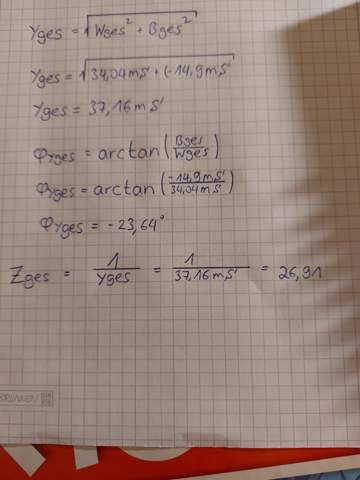 Yges = √(Wges² + Bges²)
Yges = √(34,04mS + (-14,9mS
Yges = 37,16mS
φYges = arctan(Bges/Wges)
φYges = arctan(-14,9mS/34,04mS)
φYges = -23,64°
Zges = 1/Yges = 1/37,16mS = 26,91